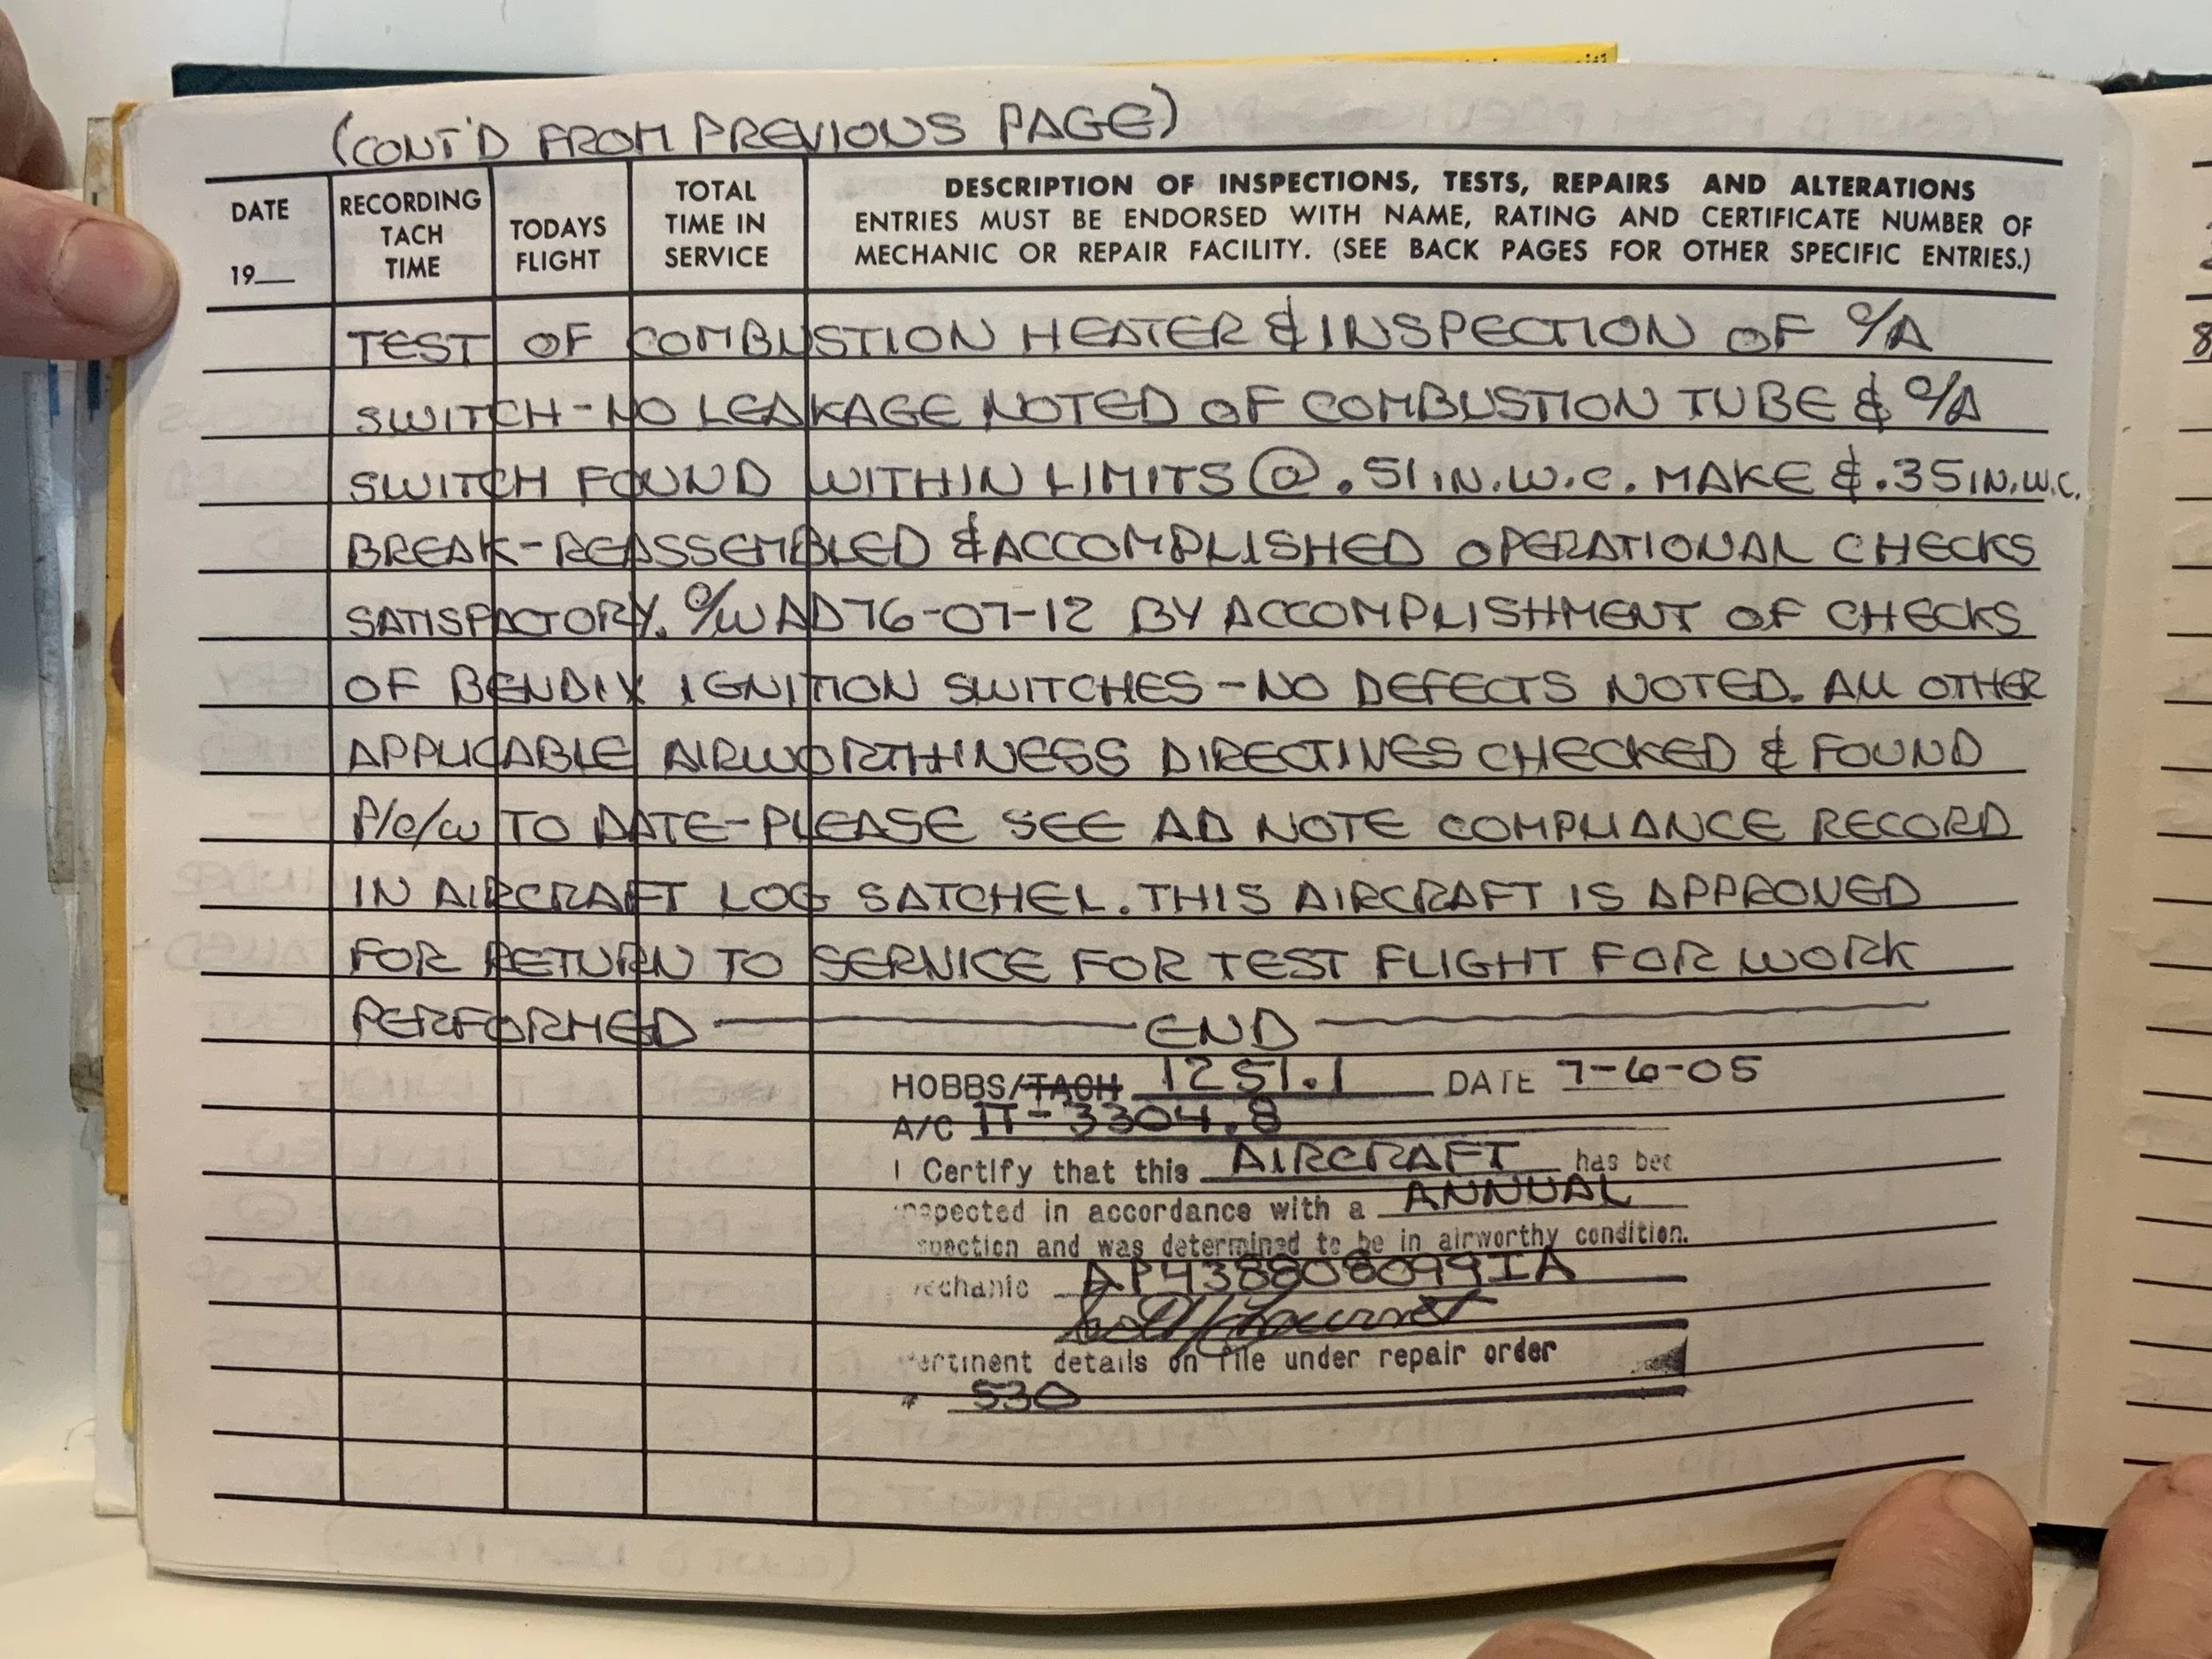 (CONT'D FROM PREVIOUS PAGE)
DATE
19__
RECORDING
TACH
TIME
TODAYS
FLIGHT
TOTAL
TIME IN
SERVICE
DESCRIPTION OF INSPECTIONS, TESTS, REPAIRS AND ALTERATIONS
ENTRIES MUST BE ENDORSED WITH NAME, RATING AND CERTIFICATE NUMBER OF
MECHANIC OR REPAIR FACILITY. (SEE BACK PAGES FOR OTHER SPECIFIC ENTRIES.)
TEST OF COMBUSTION HEATER & INSPECTION OF C/A
SWITCH - NO LEAKAGE NOTED OF COMBUSTION TUBE & C/A
SWITCH FOUND WITHIN LIMITS @ .51 IN.W.C. MAKE & .35 IN.W.C.
BREAK - REASSEMBLED & ACCOMPLISHED OPERATIONAL CHECKS
SATISFACTORY. C/W AD 76-07-12 BY ACCOMPLISHMENT OF CHECKS
OF BENDIX IGNITION SWITCHES - NO DEFECTS NOTED. ALL OTHER
APPLICABLE AIRWORTHINESS DIRECTIVES CHECKED & FOUND
P/C/W TO DATE - PLEASE SEE AD NOTE COMPLIANCE RECORD
IN AIRCRAFT LOG SATCHEL. THIS AIRCRAFT IS APPROVED
FOR RETURN TO SERVICE FOR TEST FLIGHT FOR WORK
PERFORMED ——— END ———
HOBBS/TACH 1251.1 DATE 7-6-05
A/C TT- 3304.8
I Certify that this AIRCRAFT has bee
nspected in accordance with a ANNUAL
spection and was determined to be in airworthy condition.
echanic AP438808099IA
ertinent details on file under repair order
# 530